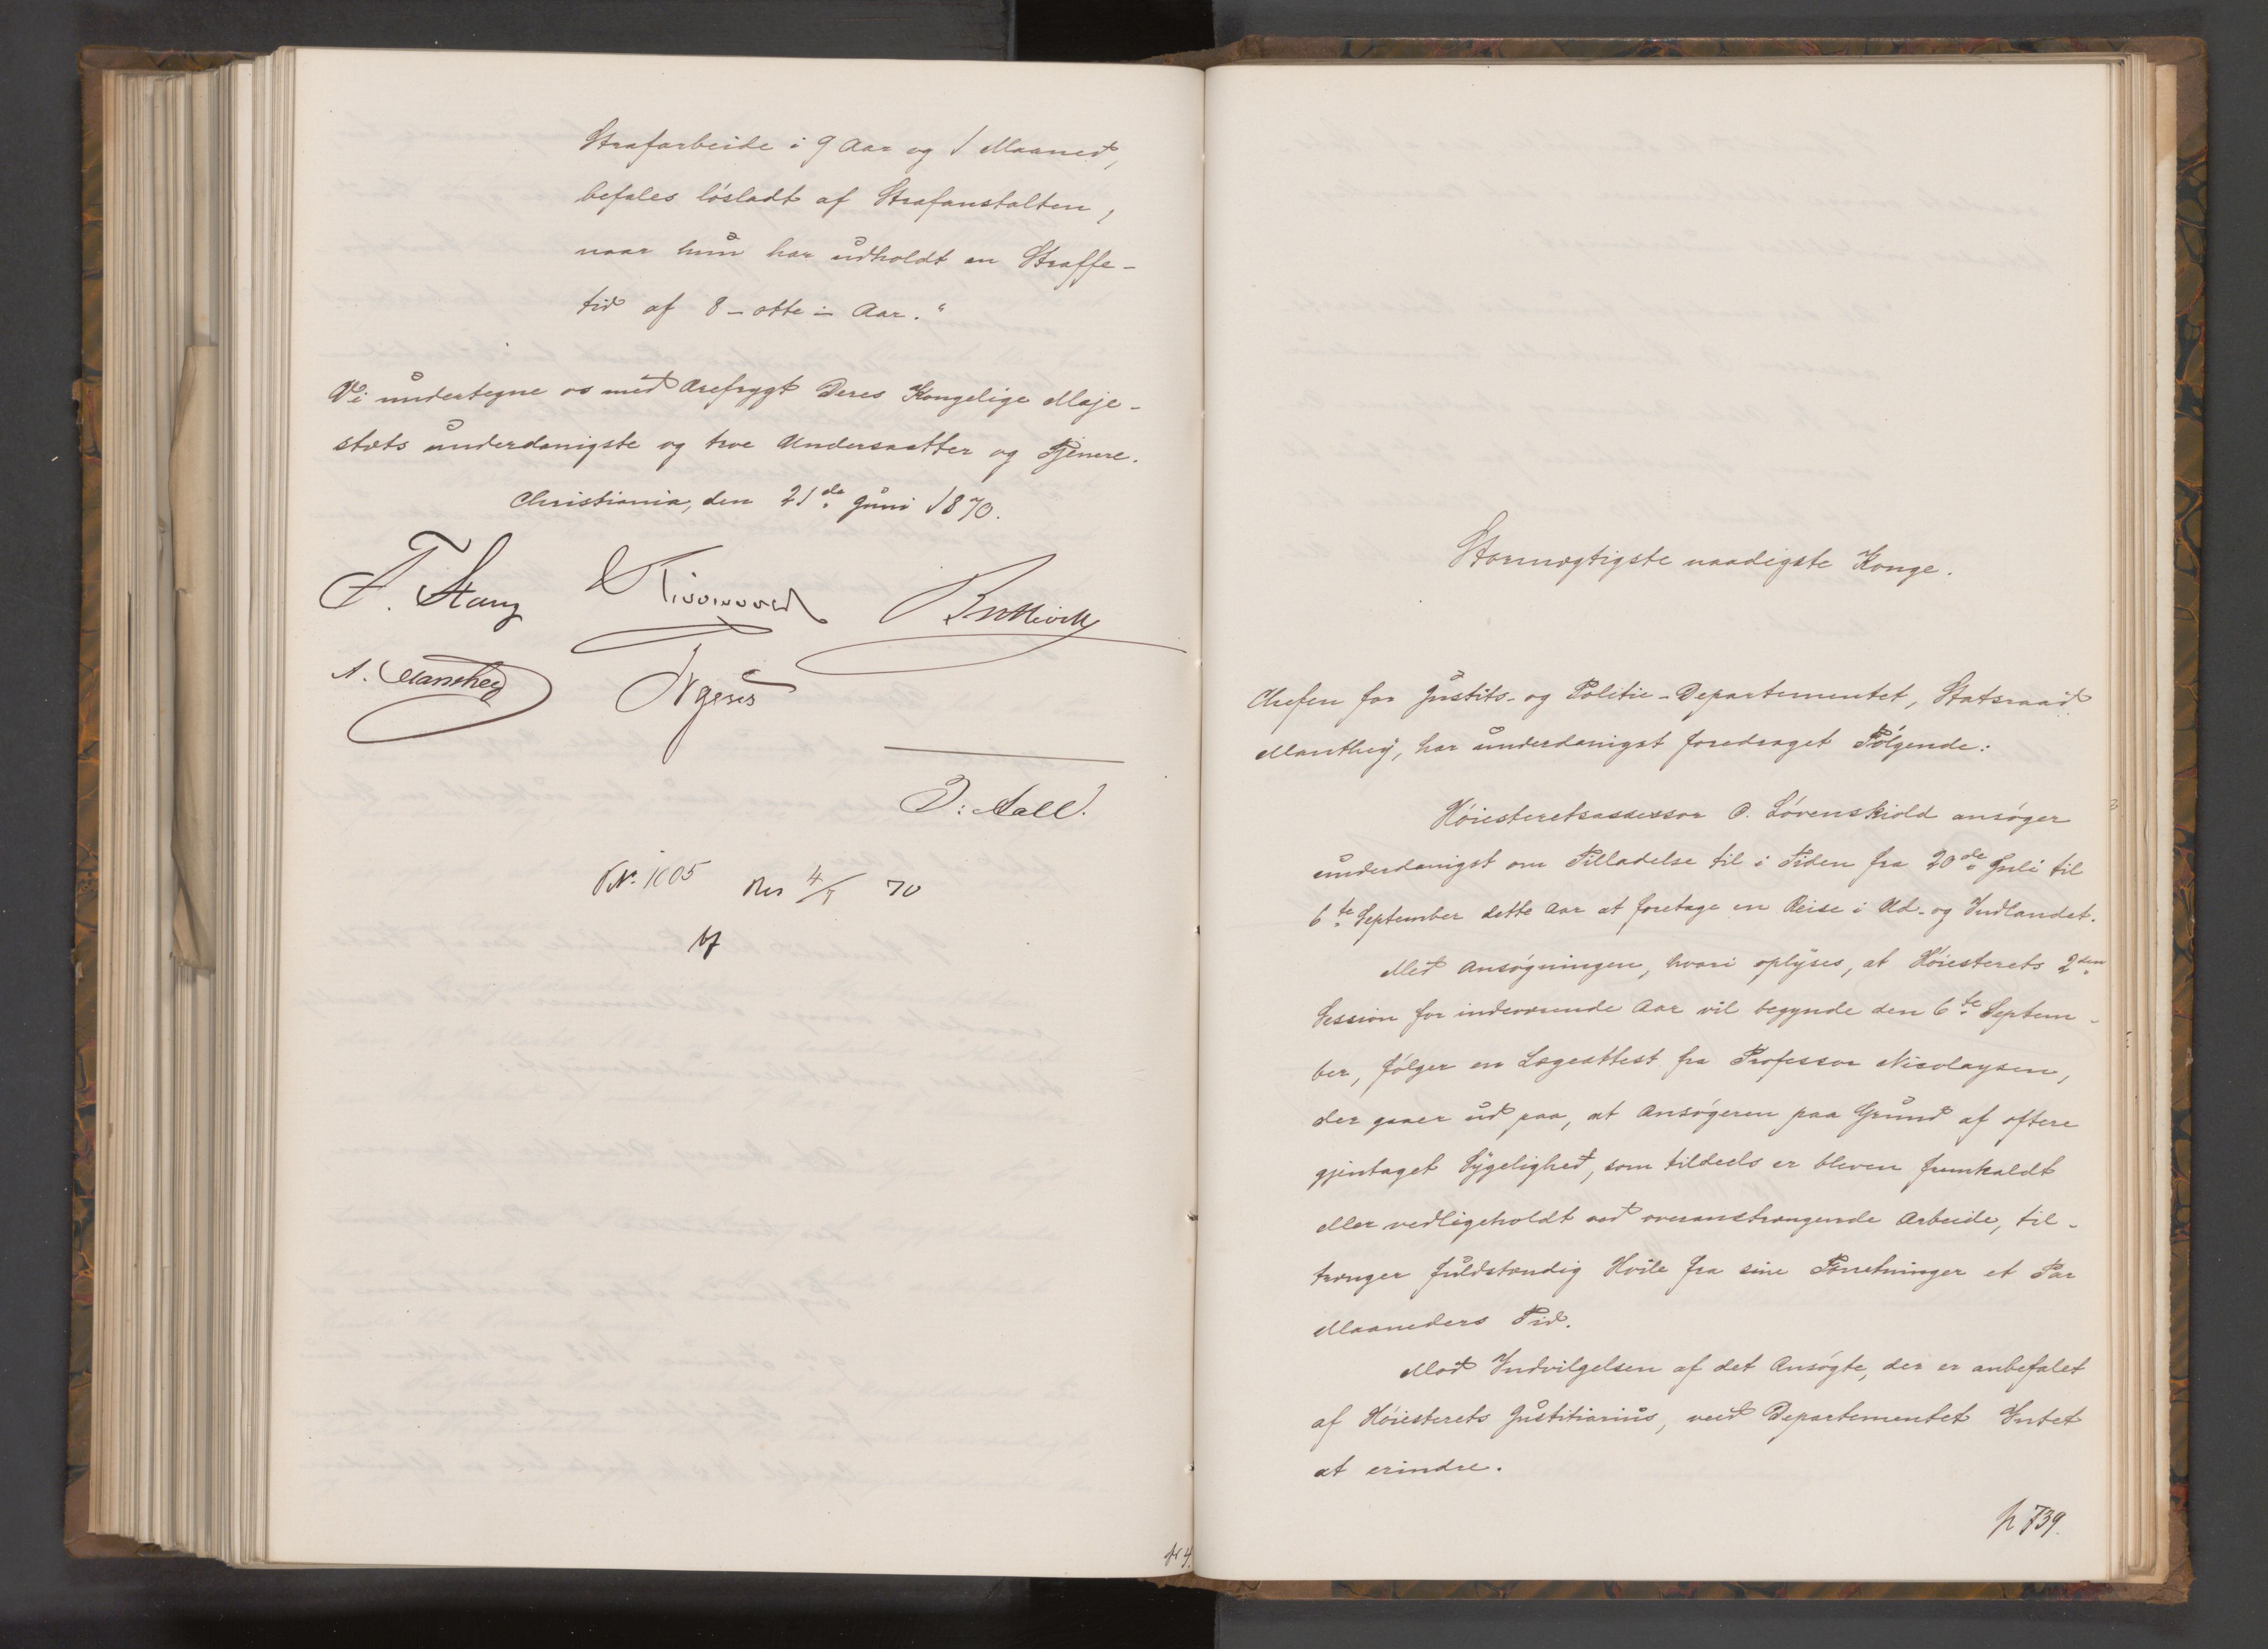 Strafarbeide i 9 Aar og 1 Maaned,
befales lösladt af Strafanstalten,
naar hun har udholdt en Straffe-
tid af 8 – otte – Aar."
Vi undertegne os med Ærefrygt Deres Kongelige Maje-
stæts underdanigste og troe Undersaatter og Tjenere.
Christiania, den 21de Juni 1870.
F. Stang
A. Manthey
J. Aall.
No. 1005 Res 4/7 70
Stormægtigste naadigste Konge.
Chefen for Justits- og Politie-Departementet, Statsraad
Manthey, har underdanigst foredraget Følgende:
Höiesteretsassessor O. Lövenskiold ansöger
underdanigst om Tilladelse til i Tiden fra 20de Juli til
6te September dette Aar at foretage en Reise i Ud- og Indlandet.
Med Ansögningen, hvori oplyses, at Höiesterets 2den
Session for indeværende Aar vil begynde den 6te Septem-
ber, fölger en Lægeattest fra Professor Nicolaysen,
der gaaer ud paa, at Ansögeren paa Grund af oftere
gjentaget Sygelighed, som tildeels er bleven fremkaldt
eller vedligeholdt ved overanstrængende Arbeide, til-
trænger fuldstændig Hvile fra sine Forretninger et Par
Maaneders Tid.
Mod Indvilgelsen af det Ansögte, der er anbefalet
af Höiesterets Justitiarius, veed Departementet Intet
at erindre.
p 739.